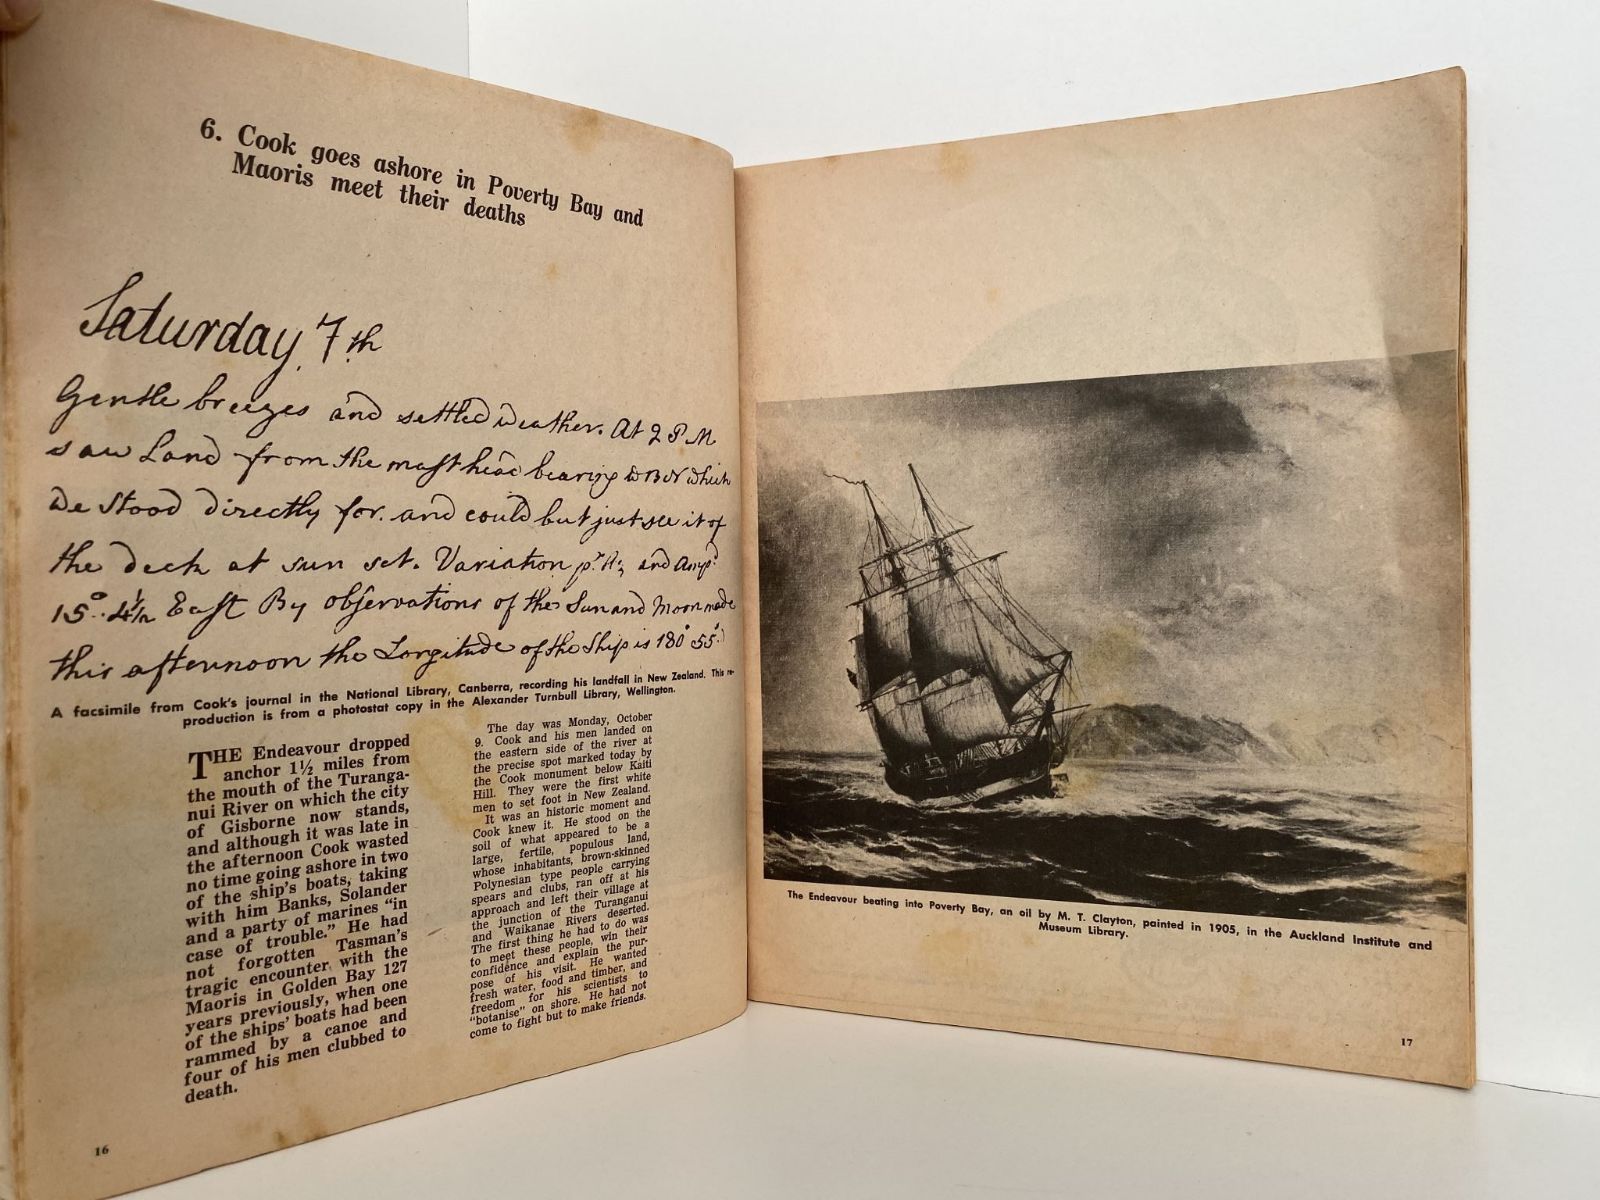 6. Cook goes ashore in Poverty Bay and
Maoris meet their deaths
Saturday 7th
Gentle breezes and settled weather. At 2 PM
saw Land from the mast head bearing WBN which
we stood directly for. and could but just see it of
the deck at sun set. Variation pr. Az and Ampd
15°. 4½ East By observations of the Sun and Moon made
this afternoon the Longitude of the Ship is 180° 55'
A facsimile from Cook's journal in the National Library, Canberra, recording his landfall in New Zealand. This re-
production is from a photostat copy in the Alexander Turnbull Library, Wellington.
THE Endeavour dropped
anchor 1½ miles from
the mouth of the Turanga-
nui River on which the city
of Gisborne now stands,
and although it was late in
the afternoon Cook wasted
no time going ashore in two
of the ship's boats, taking
with him Banks, Solander
and a party of marines "in
case of trouble." He had
not forgotten Tasman's
tragic encounter with the
Maoris in Golden Bay 127
years previously, when one
of the ships' boats had been
rammed by a canoe and
four of his men clubbed to
death.
The day was Monday, October
9. Cook and his men landed on
the eastern side of the river at
the precise spot marked today by
the Cook monument below Kaiti
Hill. They were the first white
men to set foot in New Zealand.
It was an historic moment and
Cook knew it. He stood on the
soil of what appeared to be a
large, fertile, populous land,
whose inhabitants, brown-skinned
Polynesian type people carrying
spears and clubs, ran off at his
approach and left their village at
the junction of the Turanganui
and Waikanae Rivers deserted.
The first thing he had to do was
to meet these people, win their
confidence and explain the pur-
pose of his visit. He wanted
fresh water, food and timber, and
freedom for his scientists to
"botanise" on shore. He had not
come to fight but to make friends.
16
The Endeavour beating into Poverty Bay, an oil by M. T. Clayton, painted in 1905, in the Auckland Institute and
Museum Library.
17